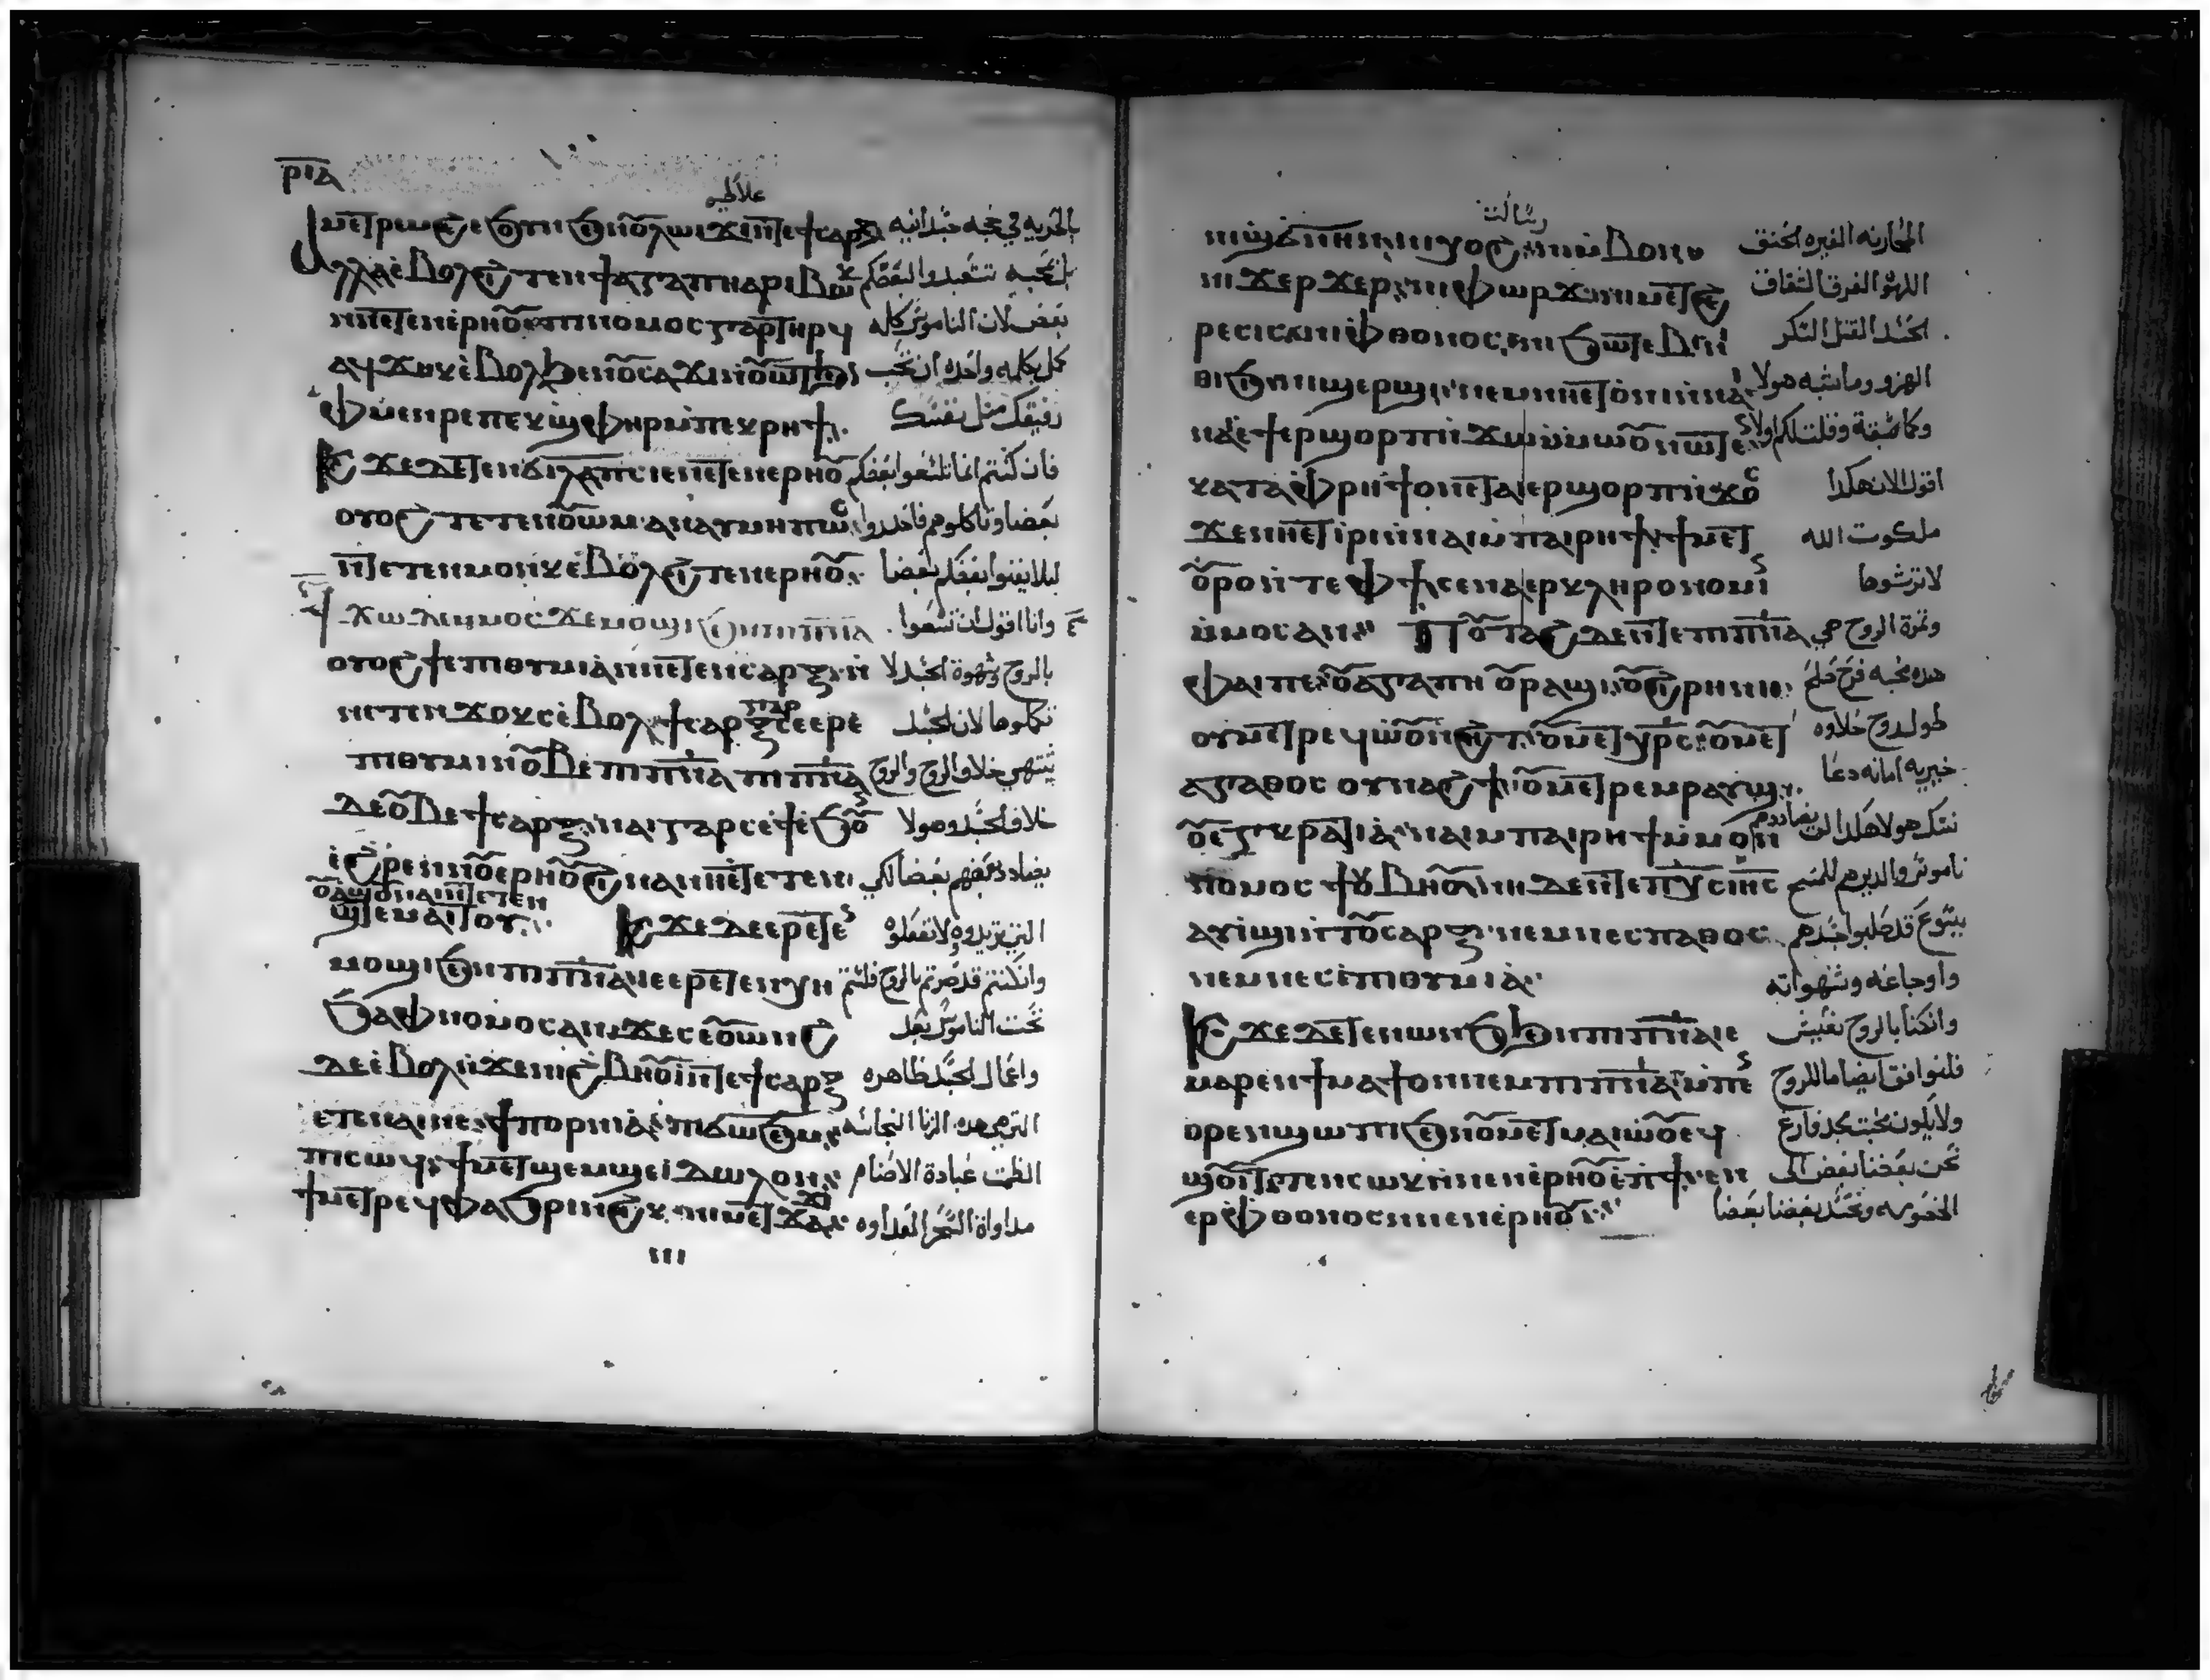 ⲣⲓⲁ
غلاطيه
ⲙⲉⲧⲣⲉⲙϩⲉ ⲉ ϧⲉⲛ ⲟⲩⲗⲱⲓϫⲓ ⲛⲧⲉ ϯⲥⲁⲣⲝ بالحريه في محبه جسدانيه
ⲁⲗⲗⲁ ⲉⲃⲟⲗϩⲓⲧⲉⲛ ϯⲁⲅⲁⲡⲏ ⲁⲣⲓⲃⲱⲕ بالمحبه تتعبدوا لبعضكم
ⲛⲛⲉⲧⲉⲛⲉⲣⲏⲟⲩ ⲡⲓⲛⲟⲙⲟⲥ ⲅⲁⲣ ⲧⲏⲣϥ بعض لان الناموس كله
ⲁϥϫⲱⲕ ⲉⲃⲟⲗ ϧⲉⲛ ⲟⲩⲥⲁϫⲓ ⲛⲟⲩⲱⲧ كمل بكلمه واحده ان تحب
ⲉⲙⲉⲛⲣⲉ ⲡⲉⲕϣⲫⲏⲣ ⲙⲡⲉⲕⲣⲏϯ رفيقك مثل نفسك
ⲓⲥϫⲉ ⲇⲉ ⲧⲉⲧⲉⲛϭⲓⲗⲁⲡⲥⲓ ⲉⲛⲉⲧⲉⲛⲉⲣⲏⲟⲩ فان كنتم انما تلسعوا بعضكم
ⲟⲩⲟϩ ⲧⲉⲧⲉⲛⲟⲩⲱⲙ ⲁⲛⲁⲩ ⲙⲏⲡⲱⲥ بعضا وتاكلوهم فاحذروا
ⲛⲧⲉⲧⲉⲛⲙⲟⲩⲛⲕ ⲉⲃⲟⲗϩⲓⲧⲉⲛⲉⲣⲏⲟⲩ ليلا يفنوا بعضكم بعضا
ϯϫⲱ ⲇⲉ ⲙⲙⲟⲥ ϫⲉ ⲙⲟϣⲓ ϧⲉⲛ ⲡⲓⲡⲛⲁ وانا اقول ان تسعوا
ⲟⲩⲟϩ ϯⲉⲡⲓⲑⲩⲙⲓⲁ ⲛⲧⲉⲧⲉⲛⲥⲁⲣⲝ ⲛ بالروح وشهوة الجسد لا
ⲛⲉⲧⲉⲛϫⲟⲕⲥ ⲉⲃⲟⲗ ϯⲥⲁⲣⲝ ⲅⲁⲣ ⲥⲉⲉⲣⲉ تكلوها لان الجسد
ⲡⲓⲑⲩⲙⲓⲛ ⲟⲩⲃⲉ ⲡⲓⲡⲛⲁ ⲡⲓⲡⲛⲁ يشتهي خلاف الروح والروح
ⲇⲉ ⲟⲩⲃⲉ ϯⲥⲁⲣⲝ ⲛⲁⲓ ⲅⲁⲣ ⲥⲉϯ ⲉϧⲟⲩ خلاف الجسد وهولا
ⲉϩⲣⲉⲛ ⲛⲟⲩⲉⲣⲏⲟⲩ ϩⲓⲛⲁ ⲛⲛⲉⲧⲉⲧⲉⲛ يضادد بعضهم بعضا لكي
ⲟⲩⲁϣⲟⲩ ⲛⲁⲓ ⲛⲧⲉⲧⲉⲛ
ϣⲧⲉⲙⲁⲓⲧⲟⲩ ⲓⲥϫⲉ ⲇⲉ ⲉⲣⲉⲧⲉⲛ الذي تريدوه لا تفعلوه
ⲙⲟϣⲓ ϧⲉⲛ ⲡⲓⲡⲛⲁ ⲓⲉ ⲉⲣⲉⲧⲉⲛⲭⲏ وان كنتم قد صرتم بالروح فلستم
ϧⲁ ⲫⲛⲟⲙⲟⲥ ⲁⲛ ϫⲉ ⲥⲉⲟⲩⲱⲛϩ تحت الناموس بعد
ⲇⲉ ⲉⲃⲟⲗ ⲛϫⲉ ⲛⲓϩⲃⲏⲟⲩⲓ ⲛⲧⲉ ϯⲥⲁⲣⲝ واعمال الجسد ظاهره
ⲉⲧⲉ ⲛⲁⲓ ⲛⲉ ϯⲡⲟⲣⲛⲓⲁ ⲡⲓϭⲱϧⲉⲙ التي هي هذه الزنا النجاسه
ⲡⲓⲥⲱϥ ϯⲙⲉⲧϣⲉⲙϣⲉ ⲓⲇⲱⲗⲟⲛ الطمث عبادة الاصنام
ϯⲙⲉⲧⲣⲉϥⲫⲁϧⲣⲓ ⲛϩⲓⲕ ⲛⲓⲙⲉⲧϫⲁϫⲓ مداواة السحر العداوه
رسالت
ⲛⲓϣϭⲛⲏⲛ ⲛⲓⲭⲟϩ ⲛⲓⲙⲃⲟⲛ المحارنه الغيره الحنق
ⲛⲓϫⲉⲣϫⲉⲣ ⲛⲓⲫⲱⲣϫ ⲛⲓⲙⲉⲧϩⲉ اللهو الفرق الشقاق
ⲣⲉⲥⲓⲥ ⲛⲓⲫⲑⲟⲛⲟⲥ ⲛⲓϧⲱⲧⲉⲃ ⲛⲓ الحسد القتل السكر
ⲑⲓϧⲓ ⲛⲓϣⲉⲣϣⲓ ⲛⲉⲙ ⲛⲏⲉⲧⲟⲛⲓ ⲛⲛⲁⲓ الهزو وما يشبه هولا
ⲛⲁⲓ ⲉϯⲉⲣϣⲟⲣⲡ ⲛϫⲱ ⲙⲙⲱⲟⲩ ⲛⲱⲧⲉⲛ وكما سبقة وقلت لكم اولا
ⲕⲁⲧⲁ ⲫⲣⲏϯ ⲟⲛ ⲉⲧⲁⲓⲉⲣϣⲟⲣⲡ ⲛϫⲟⲥ اقول الان هكذا
ϫⲉ ⲛⲏⲉⲧⲓⲣⲓ ⲛⲛⲁⲓ ⲙⲡⲁⲓⲣⲏϯ ϯⲙⲉⲧ ملكوت الله
ⲟⲩⲣⲟ ⲛⲧⲉ ⲫϯ ⲥⲉⲛⲁⲉⲣⲕⲗⲏⲣⲟⲛⲟⲙⲓⲛ لا ترثوها
ⲙⲙⲟⲥ ⲁⲛ ⲡⲟⲩⲧⲁϩ ⲇⲉ ⲛⲧⲉ ⲡⲓⲡⲛⲁ وثمرة الروح هي
ⲫⲁⲓ ⲡⲉ ⲟⲩⲁⲅⲁⲡⲏ ⲟⲩⲣⲁϣⲓ ⲟⲩϩⲓⲣⲏⲛⲏ هذه محبه فرح سلم
ⲟⲩⲙⲉⲧⲣⲉϥⲱⲟⲩⲛϩⲏⲧ ⲟⲩⲙⲉⲧⲭⲣⲥ ⲟⲩⲙⲉⲧ طول روح حلاوه
ⲁⲅⲁⲑⲟⲥ ⲟⲩⲛⲁϩϯ ⲟⲩⲙⲉⲧⲣⲉⲙⲣⲁⲩϣ خيريه امانه دعا
ⲟⲩⲉⲅⲕⲣⲁⲧⲓⲁ ⲛⲁⲓ ⲙⲡⲁⲓⲣⲏϯ ⲙⲙⲟⲛ نسك هولا هكذا ليس يضاددهم
ⲛⲟⲙⲟⲥ ϯ ⲟⲩⲃⲏⲟⲩ ⲛⲏ ⲇⲉ ⲛⲧⲉ ⲡⲭⲥ ⲓⲏⲥ ناموس والذين هم للمسيح
ⲁⲩⲓϣⲓ ⲛⲧⲟⲩⲥⲁⲣⲝ ⲛⲉⲙ ⲛⲉⲥⲡⲁⲑⲟⲥ يسوع قد صلبوا جسدهم
ⲛⲉⲙ ⲛⲉⲥⲉⲡⲓⲑⲩⲙⲓⲁ واوجاعه وشهواته
ⲓⲥϫⲉ ⲇⲉ ⲧⲉⲛⲱⲛϧ ϧⲉⲛ ⲡⲓⲡⲛⲁ ⲓⲉ وان كنا بالروح نعيش
ⲙⲁⲣⲉⲛϯⲙⲁϯ ⲟⲛ ⲛⲉⲙ ⲡⲓⲡⲛⲁ ⲙⲡⲉⲛ فلنوافق ايضا ما للروح
ⲑⲣⲉⲛϣⲱⲡⲓ ϧⲉⲛ ⲟⲩⲙⲉⲧⲙⲁⲓⲱⲟⲩ ⲉϥ ولا نكون نحب مجد فارغ
ϣⲟⲩⲓⲧ ⲉⲛⲥⲱⲕ ⲛⲛⲉⲛⲉⲣⲏⲟⲩ ⲉⲡϯ ⲧⲉⲛ نحن بعضنا بعض الى
ⲉⲣⲫⲑⲟⲛⲟⲥ ⲛⲛⲉⲛⲉⲣⲏⲟⲩ الخصومه ونحسد بعضنا بعضا